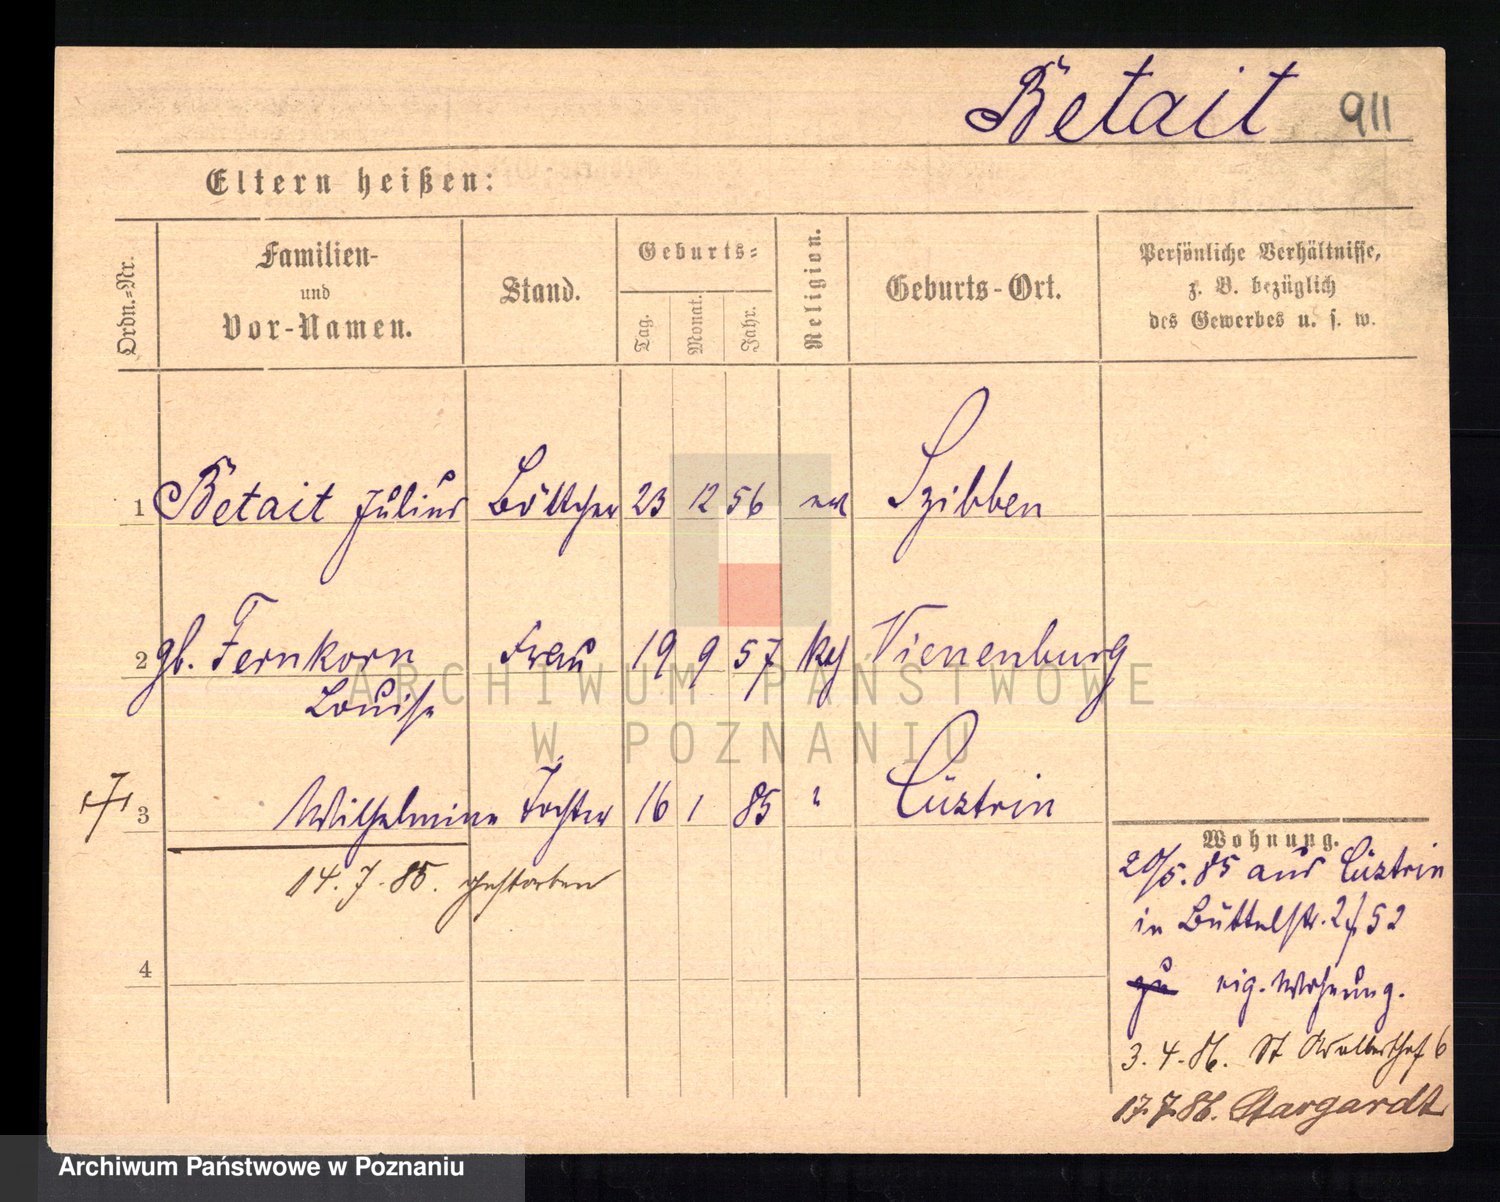 Betait 911
Eltern heißen:
Ordn.=Nr.
Familien-
und
Vor-Namen.
Stand.
Geburts=
Tag.
Monat.
Jahr.
Religion.
Geburts-Ort.
Persönliche Verhältnisse,
z. B. bezüglich
des Gewerbes u. s. w.
1 Betait Julius Böttcher 23 12 56 ev Szibben
2 gb. Fernkorn Frau 19 9 57 kth Vienenburg
Louise
3 Wilhelmine Tochter 16 1 85 " Cüstrin
14. 7. 85. gestorben
4
Wohnung.
20/5. 85 aus Cüstrin
in Büttelstr. 52
zu eig. Wohnung.
3. 4. 86. St Adalberthof 6
17. 7. 86. Stargardt
ARCHIWUM PAŃSTWOWE
W POZNANIU
Archiwum Państwowe w Poznaniu